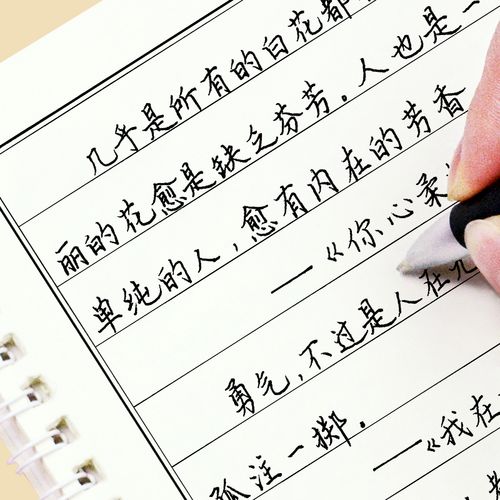 几乎是所有的白花都
丽的花愈是缺乏芬芳。人也是一
单纯的人，愈有内在的芳香
——《你心柔
勇气，不过是人在
孤注一掷.
——《我在